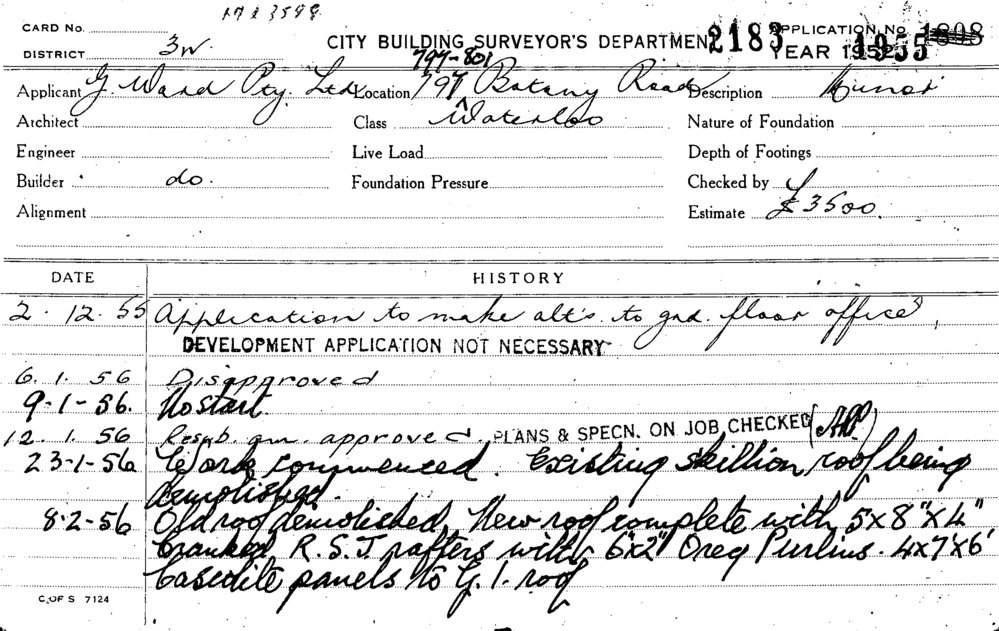 CARD No.
DISTRICT 3W
CITY BUILDING SURVEYOR'S DEPARTMENT
2183
APPLICATION No. 1808
YEAR 1952 1955
797-801
Applicant G. Ward Pty. Ltd Location 797 Botany Road Description Minor
Architect Class Waterloo Nature of Foundation
Engineer Live Load Depth of Footings
Builder do. Foundation Pressure Checked by
Alignment Estimate £3500.
DATE HISTORY
2.12.55 Application to make alt's. to grd. floor office,
DEVELOPMENT APPLICATION NOT NECESSARY
6.1.56 Disapproved
9-1-56. No start.
12.1.56 approved. PLANS & SPECN. ON JOB CHECKED
23-1-56 Work commenced. Existing skillion roof being
demolished.
8-2-56 Old roof demolished. New roof complete with 5x8"x4"
Cranked R.S.J. rafters with 6"x2" Oreg Purlins. 4x7'x6'
panels to G.I. roof
C. OF S 7124